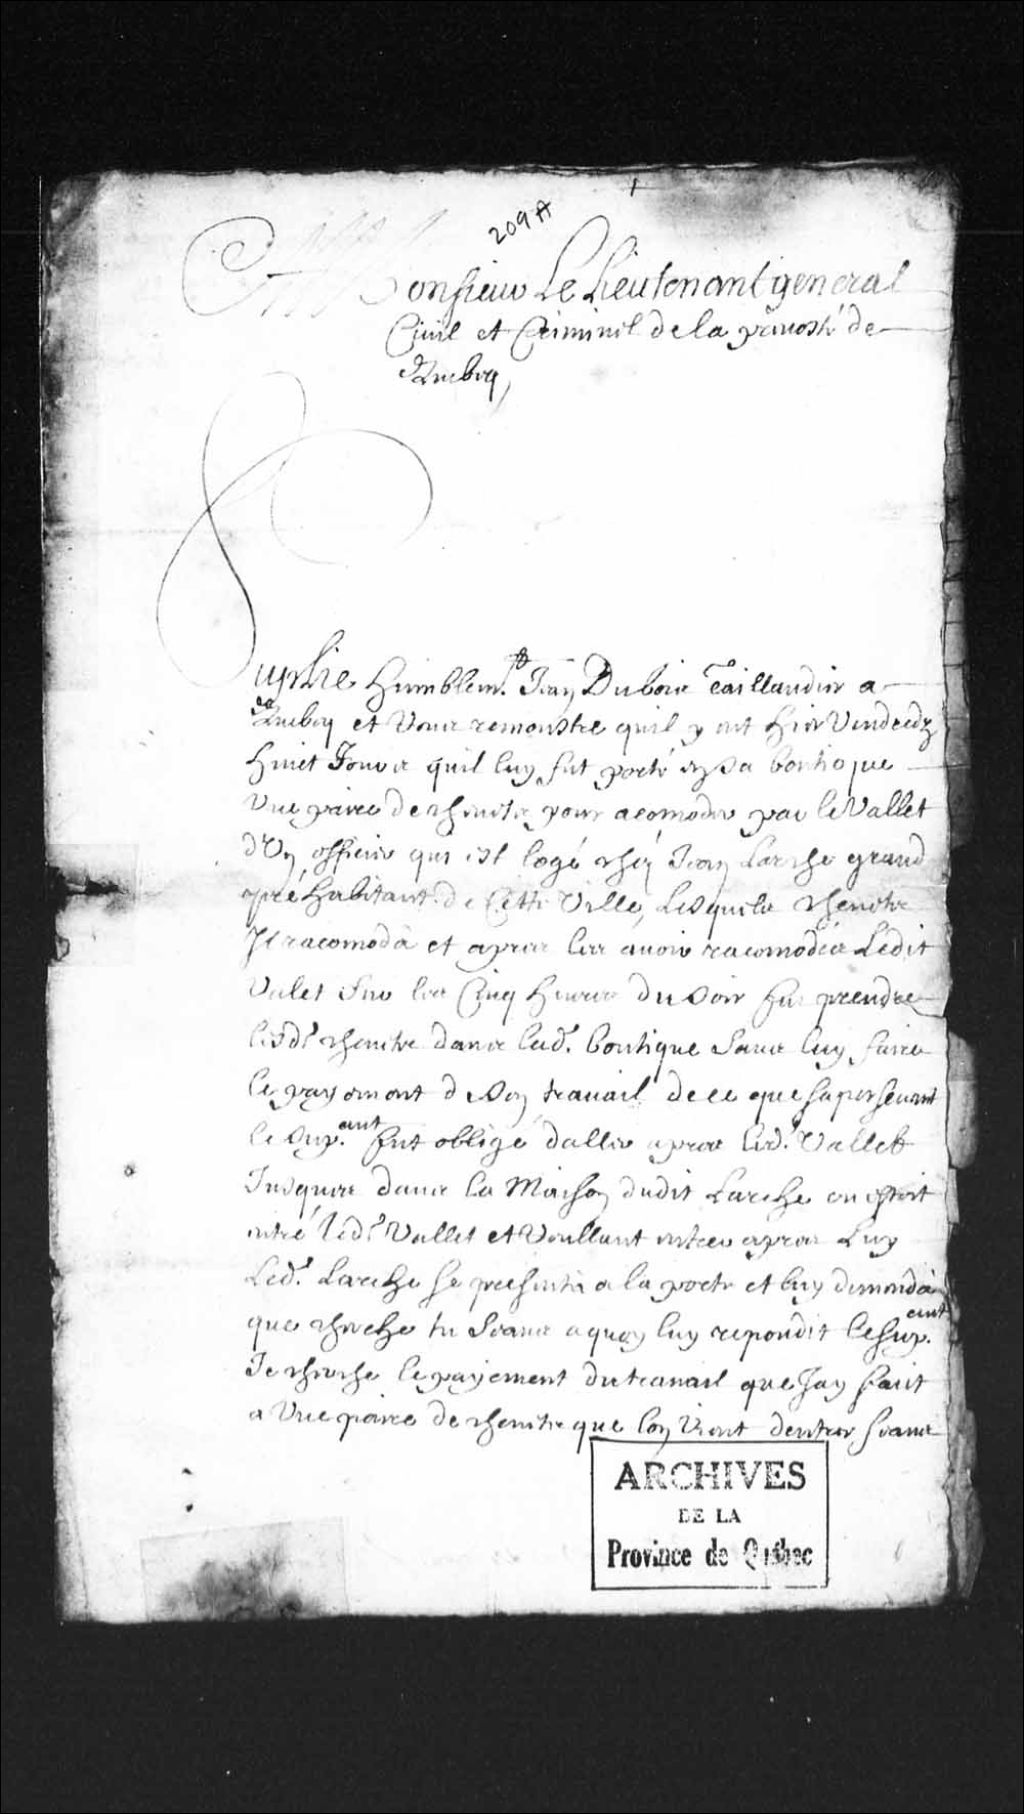 209A
Monsieur Le Lieutenant general
Civil et Criminel de la prevosté de
Quebecq
Suplie humblem.t Jean Dubois Taillandier a
Quebecq et Vous remonstre quil y eut hier Vendredy
huict Jours quil luy fut porté en sa boutique
Une paire de chenetz pour acomoder par le Vallet
d'Un officier qui est logé chez Jean Larche grand
pré habitant de Cette Ville, Lesquels chenetz
Il racomoda et apres les avoir racomodés Ledit
Valet sur les Cinq heures du soir fut prendre
lesd.t chenetz dans lad. boutique sans luy faire
le payement de son travail de ce que sapersevant
le sup.ant fut obligé daller apres led.t Vallet
Jusques dans la Maison dudit Larche ou estoit
entré led.t Vallet et Voullant entrer apres Luy
Led.t Larche se presenta a la porte et luy demanda
que cherche tu ceans a quoy luy repondit le sup.ant
Je cherche le payement du travail que Jay fait
a Une paire de chenetz que lon Vient dentrer ceans
ARCHIVES
DE LA
Province de Québec